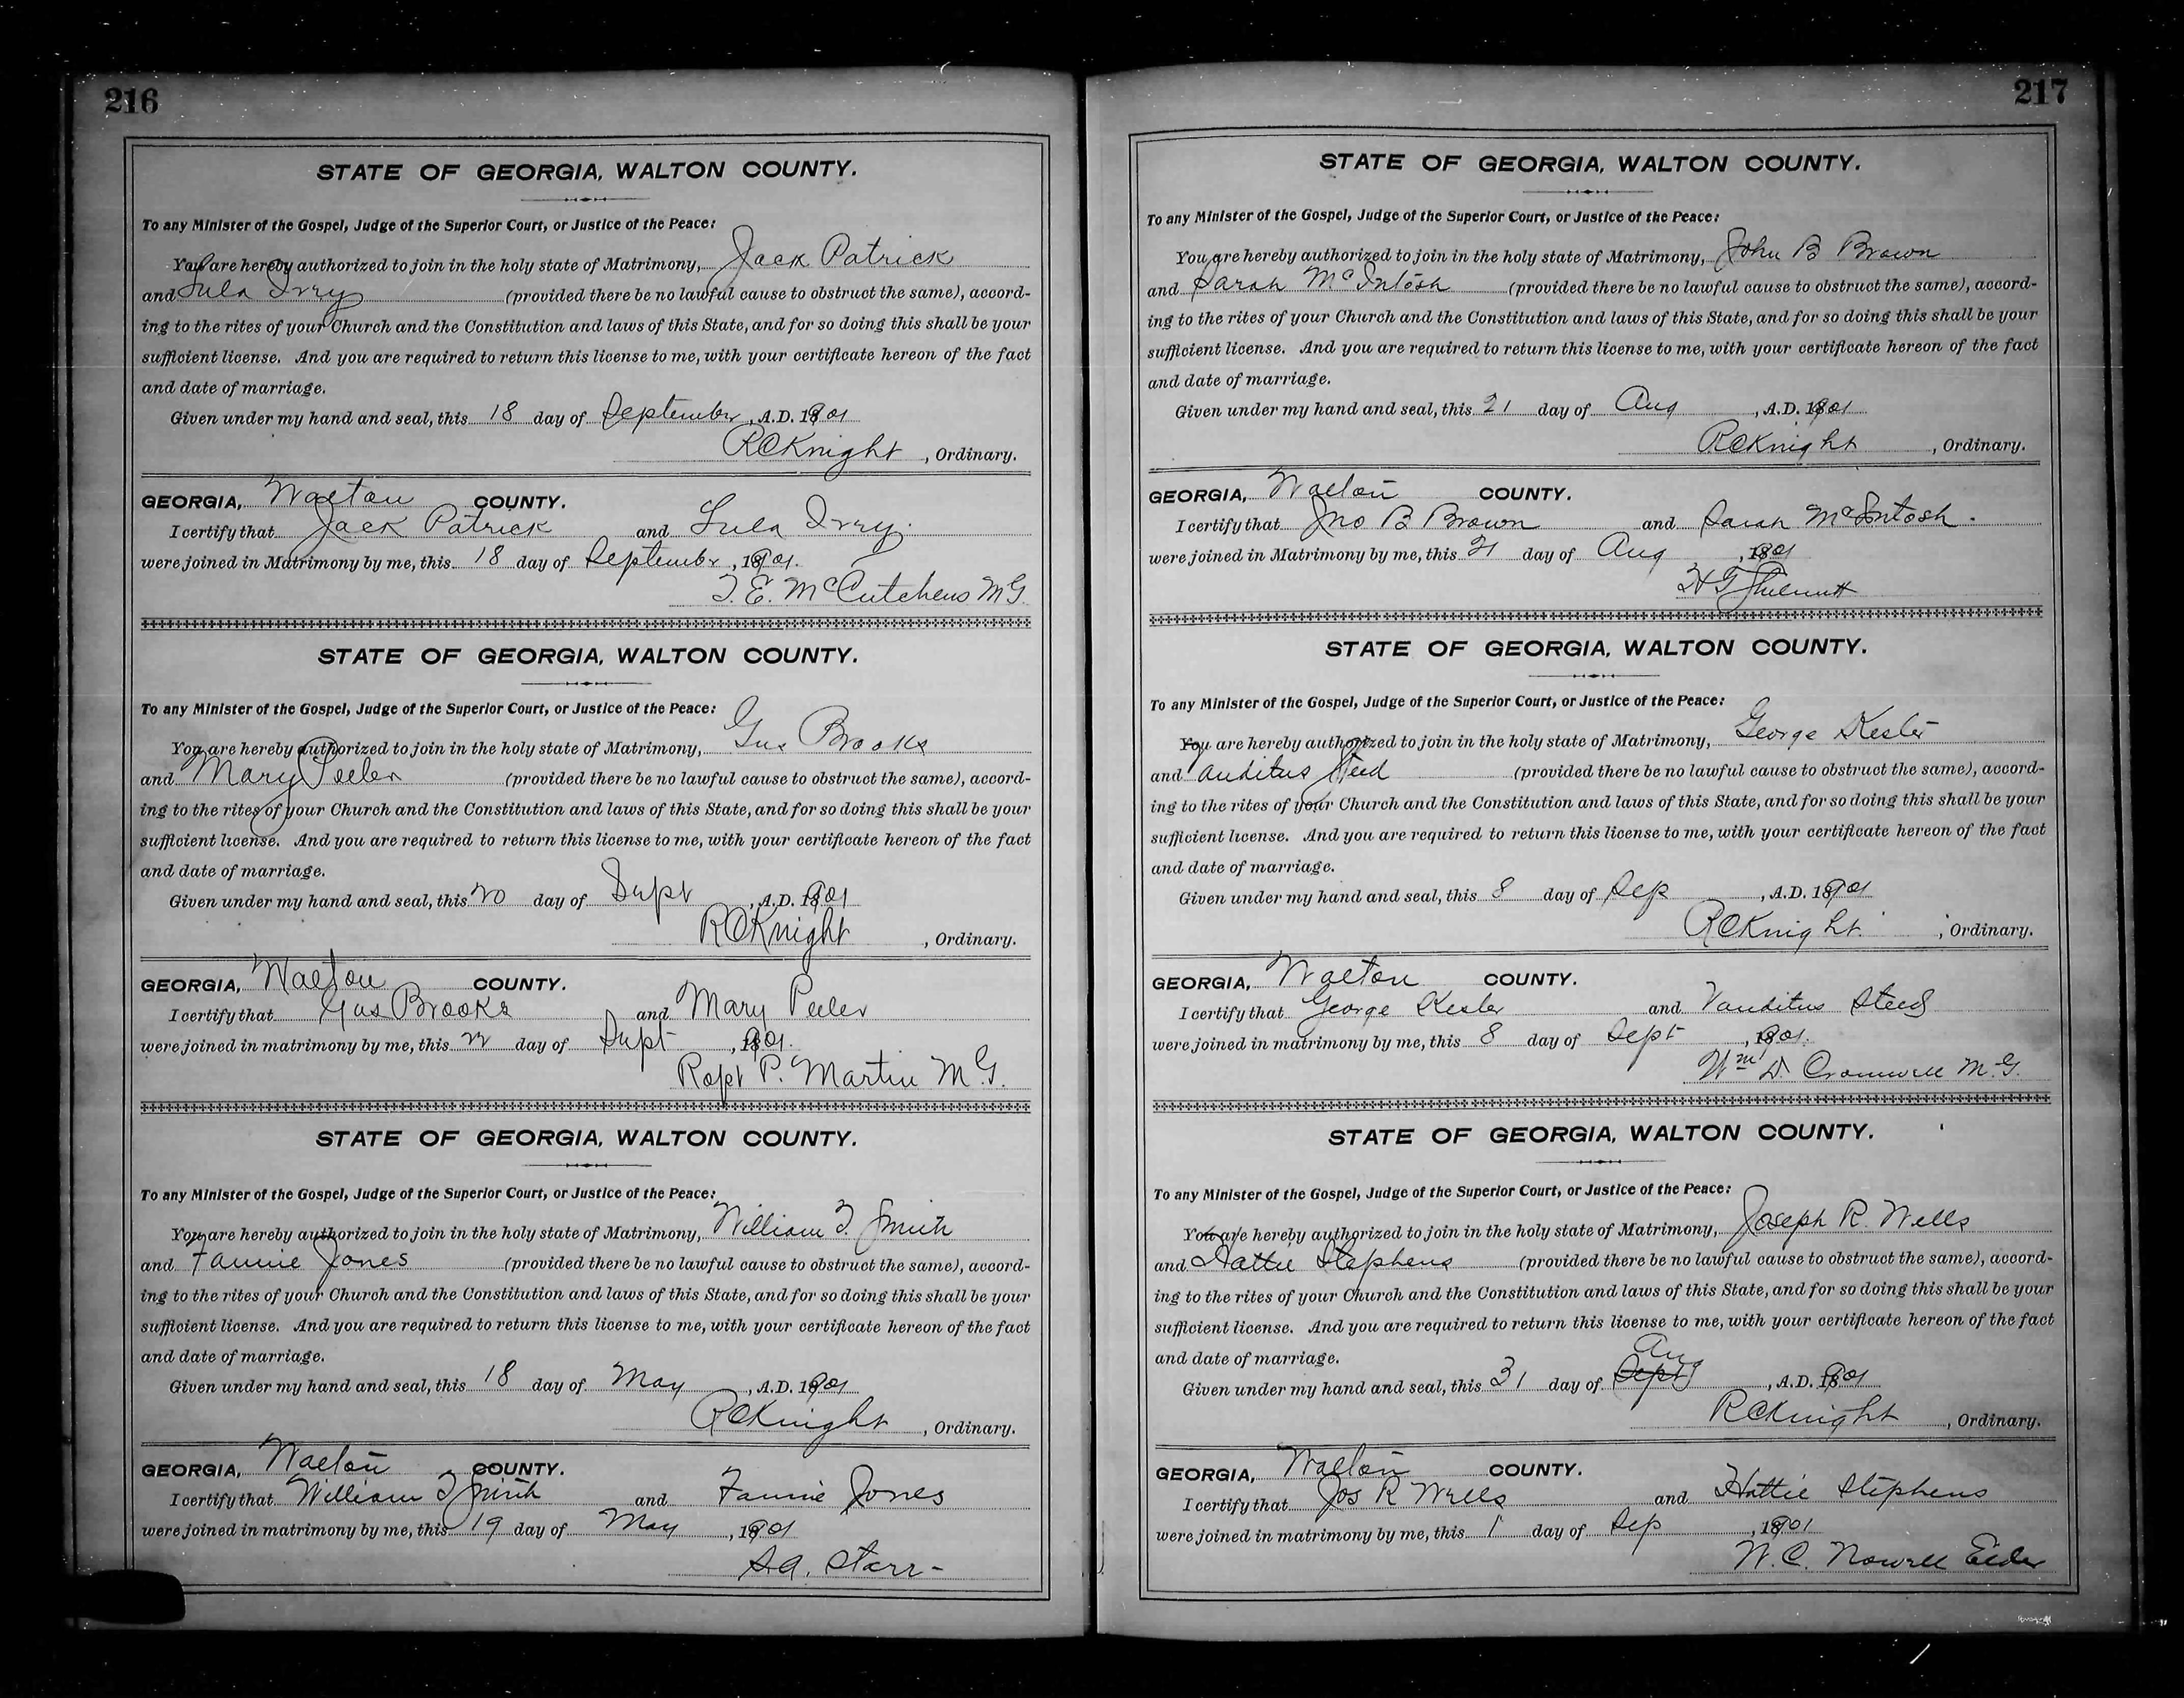 216
STATE OF GEORGIA, WALTON COUNTY.
To any Minister of the Gospel, Judge of the Superior Court, or Justice of the Peace:
You are hereby authorized to join in the holy state of Matrimony, Jack Patrick
and Lula Ivey (provided there be no lawful cause to obstruct the same), accord-
ing to the rites of your Church and the Constitution and laws of this State, and for so doing this shall be your
sufficient license. And you are required to return this license to me, with your certificate hereon of the fact
and date of marriage.
Given under my hand and seal, this 18 day of September, A.D. 1901
R C Knight, Ordinary.
GEORGIA, Walton COUNTY.
I certify that Jack Patrick and Lula Ivey.
were joined in Matrimony by me, this 18 day of September, 1901.
T. E. McCutchens M G.
STATE OF GEORGIA, WALTON COUNTY.
To any Minister of the Gospel, Judge of the Superior Court, or Justice of the Peace:
You are hereby authorized to join in the holy state of Matrimony, Gus Brooks
and Mary Peeler (provided there be no lawful cause to obstruct the same), accord-
ing to the rites of your Church and the Constitution and laws of this State, and for so doing this shall be your
sufficient license. And you are required to return this license to me, with your certificate hereon of the fact
and date of marriage.
Given under my hand and seal, this 20 day of Sept, A.D. 1901
R C Knight, Ordinary.
GEORGIA, Walton COUNTY.
I certify that Gus Brooks and Mary Peeler
were joined in matrimony by me, this 22 day of Sept, 1901.
Robt P. Martin M. G.
STATE OF GEORGIA, WALTON COUNTY.
To any Minister of the Gospel, Judge of the Superior Court, or Justice of the Peace:
You are hereby authorized to join in the holy state of Matrimony, William T. Smith
and Fannie Jones (provided there be no lawful cause to obstruct the same), accord-
ing to the rites of your Church and the Constitution and laws of this State, and for so doing this shall be your
sufficient license. And you are required to return this license to me, with your certificate hereon of the fact
and date of marriage.
Given under my hand and seal, this 18 day of May, A.D. 1901
R C Knight, Ordinary.
GEORGIA, Walton COUNTY.
I certify that William T Smith and Fannie Jones
were joined in matrimony by me, this 19 day of May, 1901
S A. Starr-
217
STATE OF GEORGIA, WALTON COUNTY.
To any Minister of the Gospel, Judge of the Superior Court, or Justice of the Peace:
You are hereby authorized to join in the holy state of Matrimony, John B Brown
and Sarah McIntosh (provided there be no lawful cause to obstruct the same), accord-
ing to the rites of your Church and the Constitution and laws of this State, and for so doing this shall be your
sufficient license. And you are required to return this license to me, with your certificate hereon of the fact
and date of marriage.
Given under my hand and seal, this 21 day of Aug, A.D. 1901
R C Knight, Ordinary.
GEORGIA, Walton COUNTY.
I certify that Jno B Brown and Sarah McIntosh.
were joined in Matrimony by me, this 21 day of Aug, 1901
H G
STATE OF GEORGIA, WALTON COUNTY.
To any Minister of the Gospel, Judge of the Superior Court, or Justice of the Peace:
You are hereby authorized to join in the holy state of Matrimony, George Kesler
and Vanditus Steed (provided there be no lawful cause to obstruct the same), accord-
ing to the rites of your Church and the Constitution and laws of this State, and for so doing this shall be your
sufficient license. And you are required to return this license to me, with your certificate hereon of the fact
and date of marriage.
Given under my hand and seal, this 8 day of Sep, A.D. 1901
R C Knight, Ordinary.
GEORGIA, Walton COUNTY.
I certify that George Kesler and Vanditus Steed
were joined in matrimony by me, this 8 day of Sept, 1901.
Wm D. Cromwell M. G.
STATE OF GEORGIA, WALTON COUNTY.
To any Minister of the Gospel, Judge of the Superior Court, or Justice of the Peace:
You are hereby authorized to join in the holy state of Matrimony, Joseph R. Wells
and Hattie Stephens (provided there be no lawful cause to obstruct the same), accord-
ing to the rites of your Church and the Constitution and laws of this State, and for so doing this shall be your
sufficient license. And you are required to return this license to me, with your certificate hereon of the fact
and date of marriage.
Aug
Given under my hand and seal, this 31 day of Sept, A.D. 1901
R C Knight, Ordinary.
GEORGIA, Walton COUNTY.
I certify that Jos R Wells and Hattie Stephens
were joined in matrimony by me, this 1 day of Sep, 1901
W. C. Nowell Elder